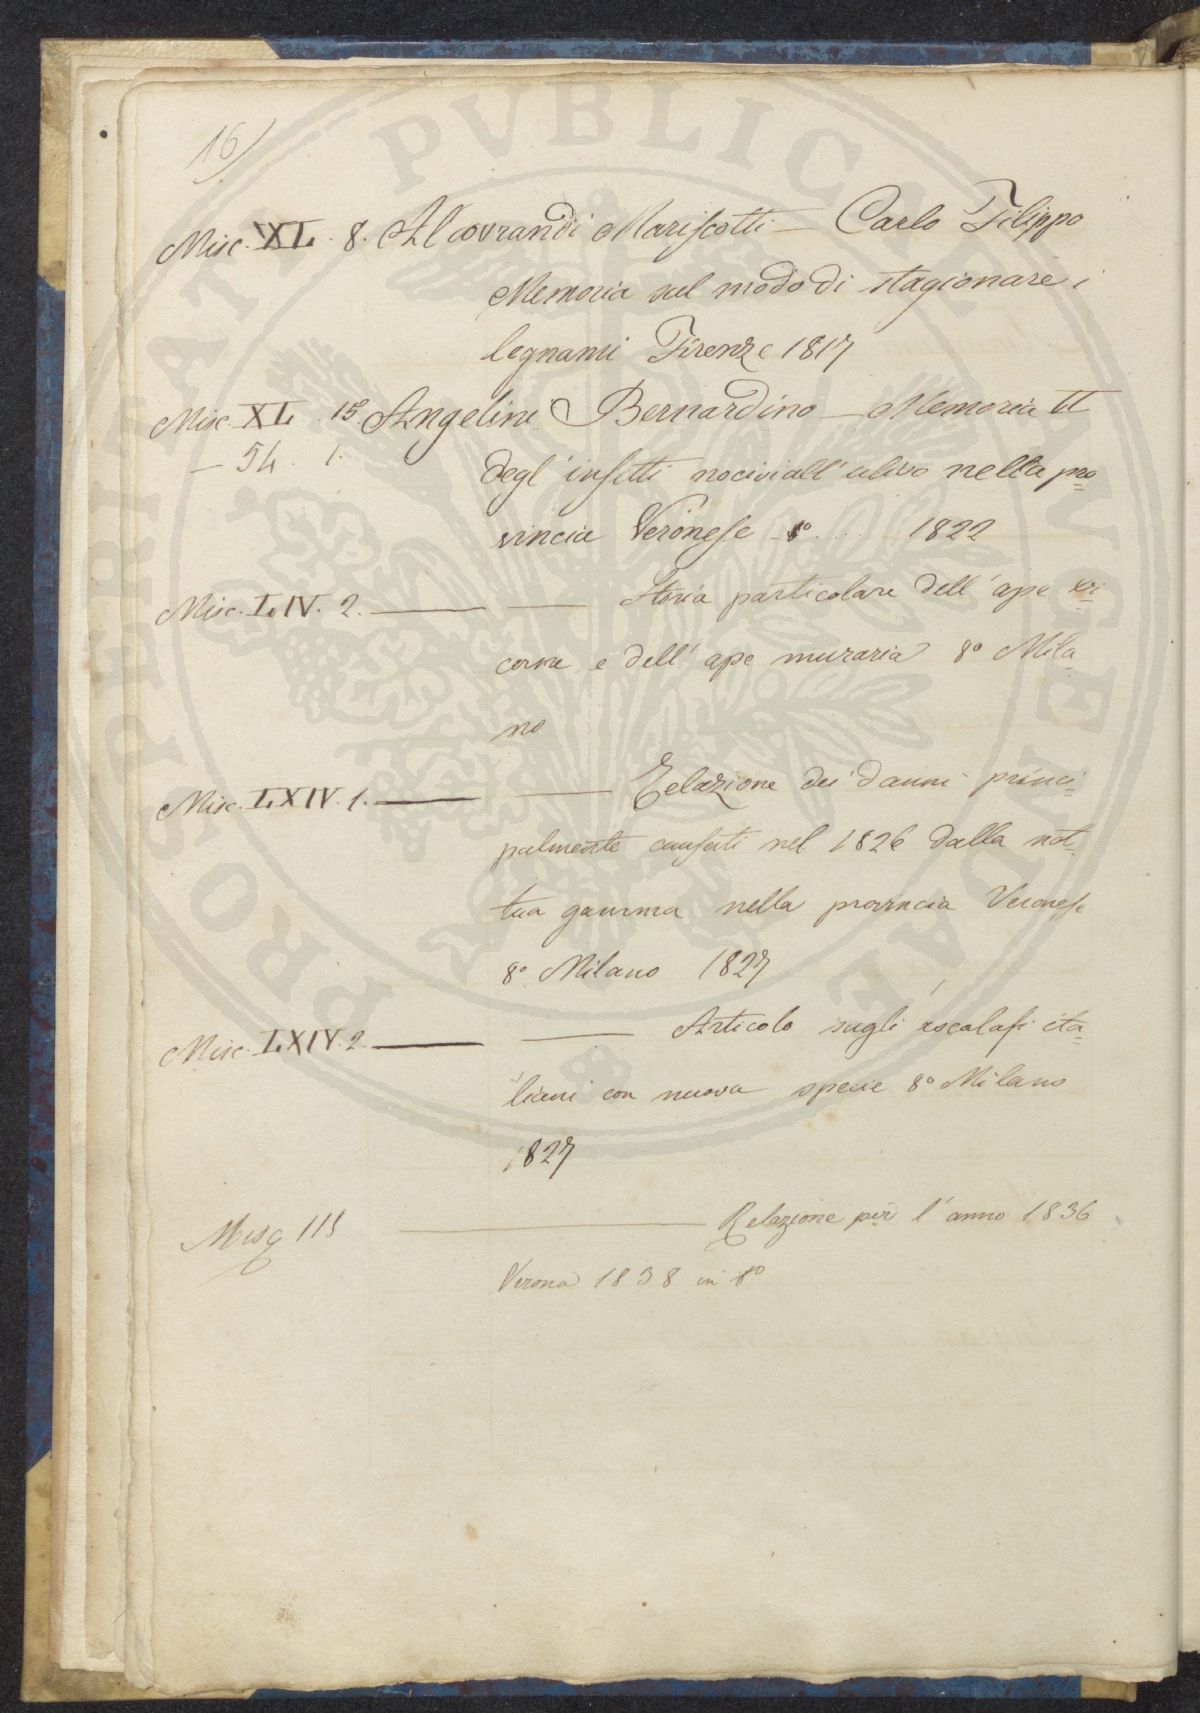 16)
Misc. XL. 8. Aldovrandi Mariscotti — Carlo Filippo
Memoria sul modo di stagionare i
legnami Firenze 1817
Misc. XL. 15. Angelini Bernardino — Memoria II
— 54. 1.
degl' insetti nocivi all' ulivo nella pro=
vincia Veronese 8° .... 1822
Misc. LIV. 2. — — Storia particolare dell' ape
corne e dell' ape muraria 8° Mila=
no
Misc. LXIV. 1. — — Relazione dei danni princi=
palmente causati nel 1826 dalla not=
tua gamma nella provincia Veronese
8° Milano 1827
Misc. LXIV. 2. — — Articolo sugli ascalafi ita=
liani con nuova specie 8° Milano
1827
Misc 115 — Relazione per l' anno 1836
Verona 1838 in 8°
PROSPERITATI PVBLICAE AVGENDAE